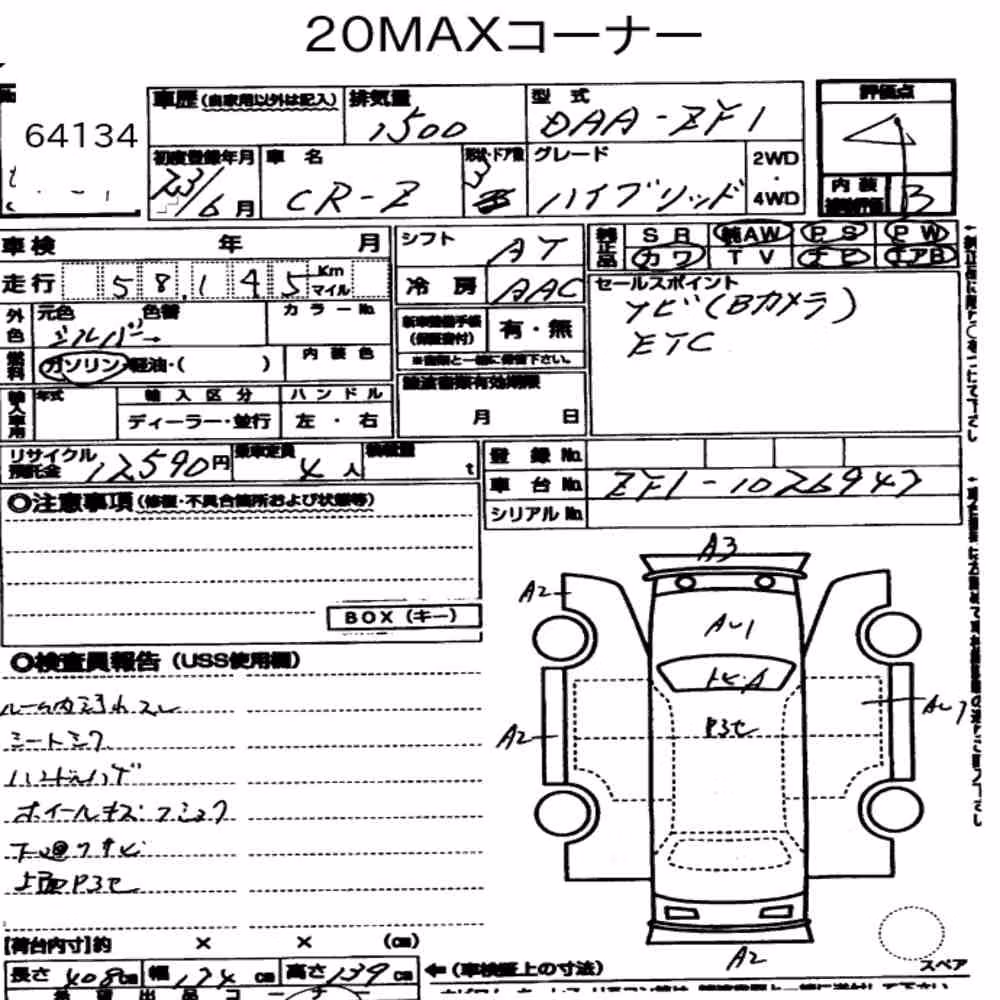 20MAXコーナー
64134
車歴 (自家用以外は記入)
排気量 1500
型式 DAA-ZF1
評価点 4
初度登録年月 23/6月
車名 CR-Z
形状・ドア数 3
グレード ハイブリッド
2WD・4WD
内装 B
車検 年 月
走行 58,145 Km マイル
シフト AT
冷房 AAC
純正品 SR 純AW PS PW
カワ TV ナビ エアB
セールスポイント
ナビ(Bカメラ)
ETC
外色 元色 シルバー 色替 カラーNo.
燃料 ガソリン・軽油・( ) 内装色
新車整備手帳 (保証書付) 有・無
※書類と一緒に保管下さい。
譲渡書類有効期限
月 日
輸入車用 年式 輸入区分 ハンドル
ディーラー・並行 左・右
リサイクル預託金 12590円
乗車定員 4人
積載量 t
登録No.
車台No. ZF1-1026947
シリアルNo.
◎注意事項 (修復・不具合箇所および状態等)
BOX(キー)
◎検査員報告 (USS使用欄)
ルーム内ヨゴレスレ
シートシワ
ハンドルハゲ
ホイールキズ フショク
下回りサビ
上面P3セ
A3
A2
AU1
トビA
P3セ
A2
AU1
A2
スペア
【荷台内寸】約 × × (cm)
長さ 408cm 幅 174cm 高さ 139cm
←(車検証上の寸法)
希望出品コーナー